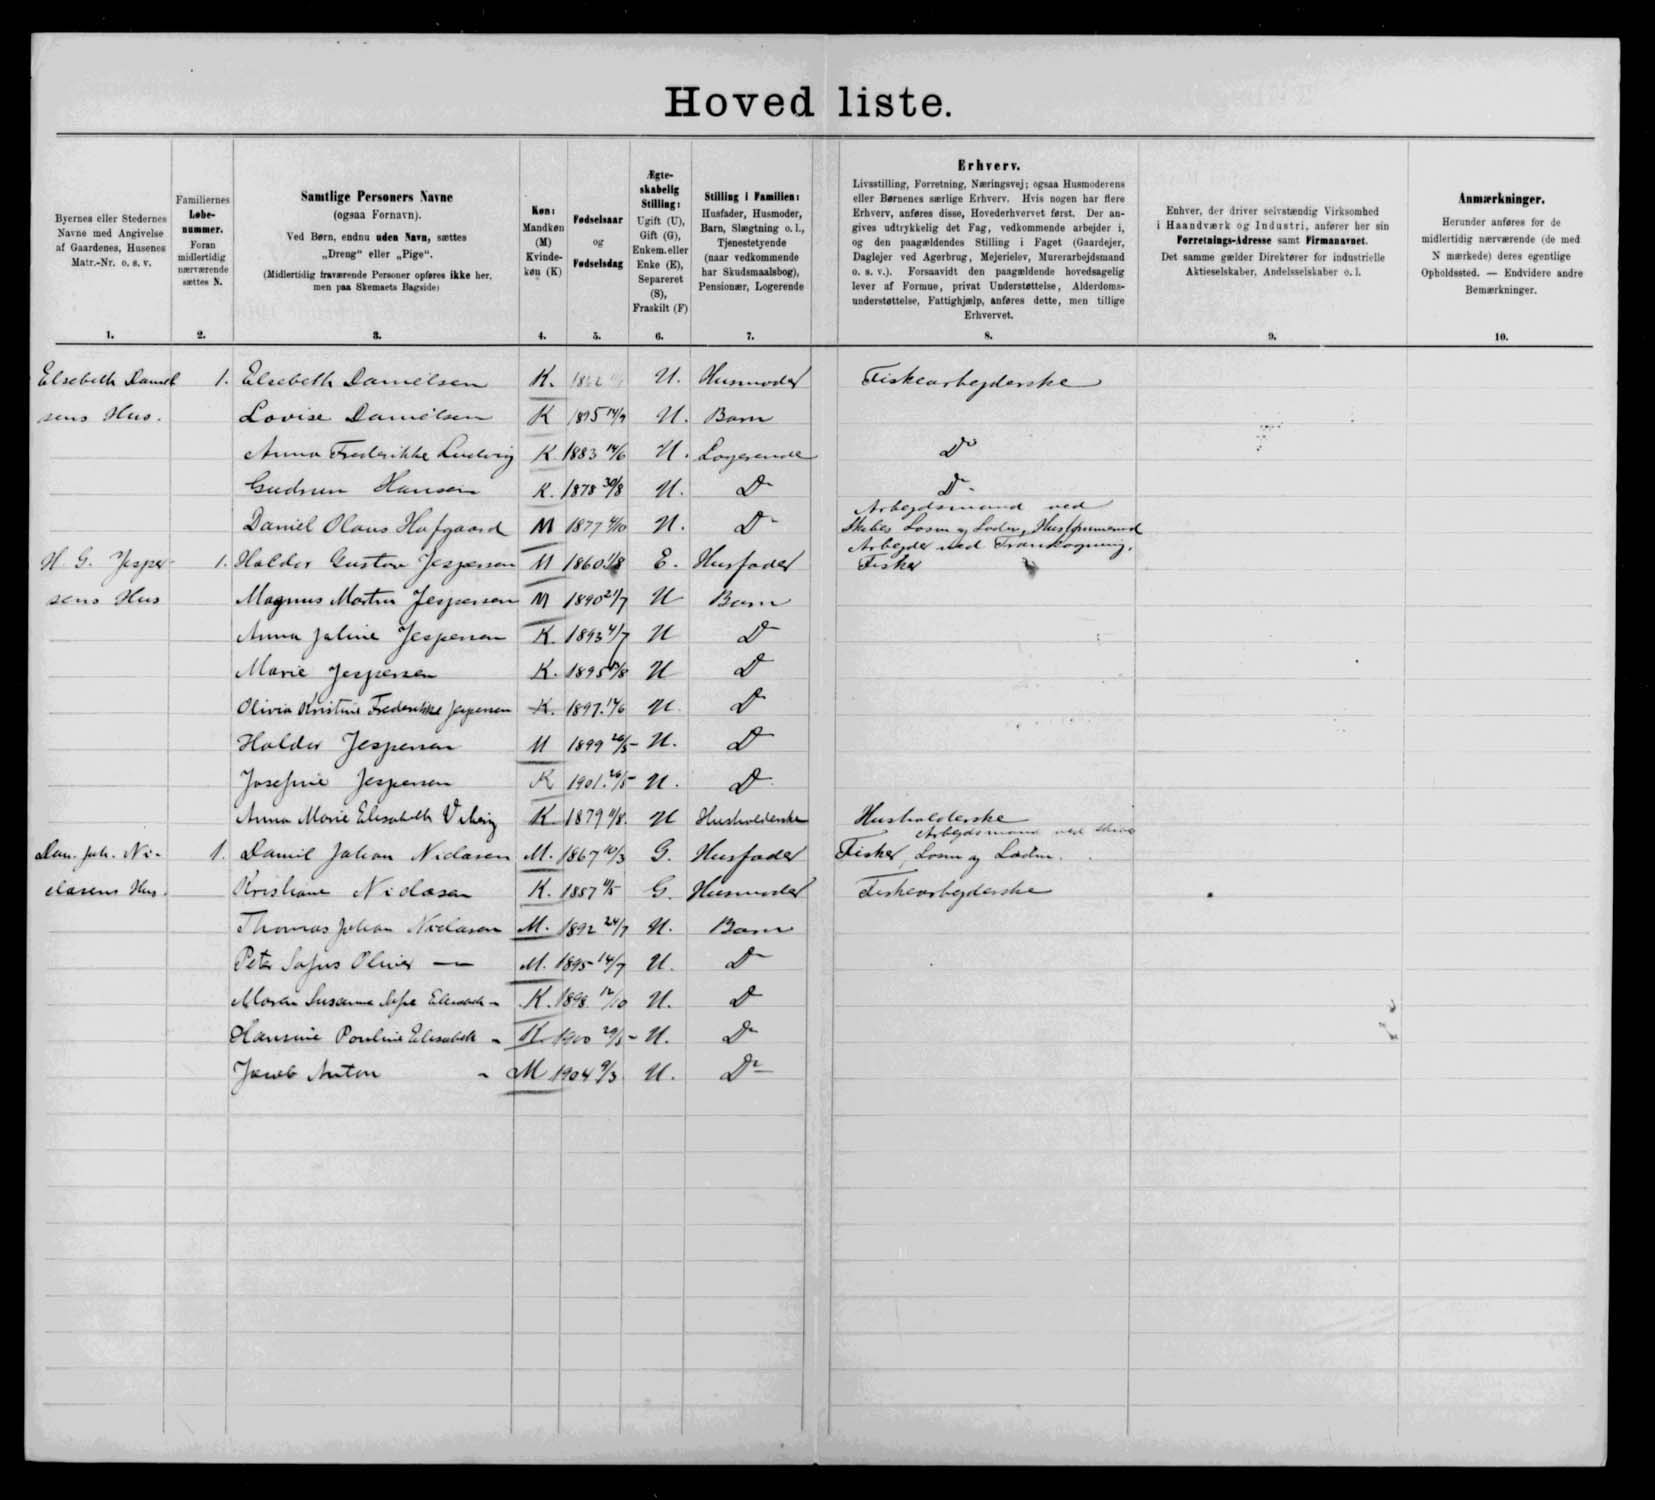 Hovedliste.
Byernes eller Stedernes
Navne med Angivelse
af Gaardenes, Husenes
Matr.-Nr. o. s. v.
1.
Familiernes
Løbe-
nummer.
Foran
midlertidig
nærværende
sættes N.
2.
Samtlige Personers Navne
(ogsaa Fornavn).
Ved Børn, endnu uden Navn, sættes
„Dreng“ eller „Pige“.
(Midlertidig fraværende Personer opføres ikke her,
men paa Skemaets Bagside)
3.
Køn:
Mandkøn
(M)
Kvinde-
køn (K)
4.
Fødselsaar
og
Fødselsdag
5.
Ægte-
skabelig
Stilling:
Ugift (U),
Gift (G),
Enkem. eller
Enke (E),
Separeret
(S),
Fraskilt (F)
6.
Stilling i Familien:
Husfader, Husmoder,
Barn, Slægtning o. l.,
Tjenestetyende
(naar vedkommende
har Skudsmaalsbog),
Pensionær, Logerende
7.
Erhverv.
Livsstilling, Forretning, Næringsvej; ogsaa Husmoderens
eller Børnenes særlige Erhverv. Hvis nogen har flere
Erhverv, anføres disse, Hovederhvervet først. Der an-
gives udtrykkelig det Fag, vedkommende arbejder i,
og den paagældendes Stilling i Faget (Gaardejer,
Daglejer ved Agerbrug, Mejerielev, Murerarbejdsmand
o. s. v.). Forsaavidt den paagældende hovedsagelig
lever af Formue, privat Understøttelse, Alderdoms-
understøttelse, Fattighjælp, anføres dette, men tillige
Erhvervet.
8.
Enhver, der driver selvstændig Virksomhed
i Haandværk og Industri, anfører her sin
Forretnings-Adresse samt Firmanavnet.
Det samme gælder Direktører for industrielle
Aktieselskaber, Andelsselskaber o. l.
9.
Anmærkninger.
Herunder anføres for de
midlertidig nærværende (de med
N mærkede) deres egentlige
Opholdssted. — Endvidere andre
Bemærkninger.
10.
Elsebeth Daniel 1. Elsebeth Danielsen K. U. Husmoder Fiskearbejderske
sens Hus. Lovise Danielsen K 1895 14/9 U. Barn
Anna Frederikke Ludvig K 1883 14/6 U. Logerende Do
Gudrun Hansen K. 1878 30/8 U. Do Do
Arbejdsmand ved
Daniel Olaus Hofgaard M 1877 4/10 U. Do Skibes Losn og Ladn,
Arbejder ved Trankogning.
H. G. Jesper- 1. Haldor Gustav Jespersen M 1860 E. Husfader Fisker
sens Hus Magnus Martin Jespersen M 1890 21/7 U Barn
Anna Jaline Jespersen K. 1893 4/7 U Do
Marie Jespersen K. 1895 U Do
Olivia Kristine Frederikke Jespersen K. 1897 U. Do
Haldor Jespersen M 1899 U. Do
Josefine Jespersen K 1901 U. Do
Anna Marie Elisabeth K 1879 U Husholderske Husholderske
Arbejdsmand ved
Dan. Joh. Ni- 1. Daniel Johan Niclasen M. 1867 10/3 G. Husfader Fisker, Losn og Ladn.
clasens Hus. Kristiane Niclasen K. G. Husmoder Fiskearbejderske
Thomas Johan Niclasen M. 1892 24/7 U. Barn
Peter Sofus Oliver — M. 1895 14/7 U. Do
Maren Susanne K. 1898 12/10 U. Do
Hansine Pouline Elisabeth - K 1900 U. Do
Jacob Anton - M 1904 9/3 U. Do